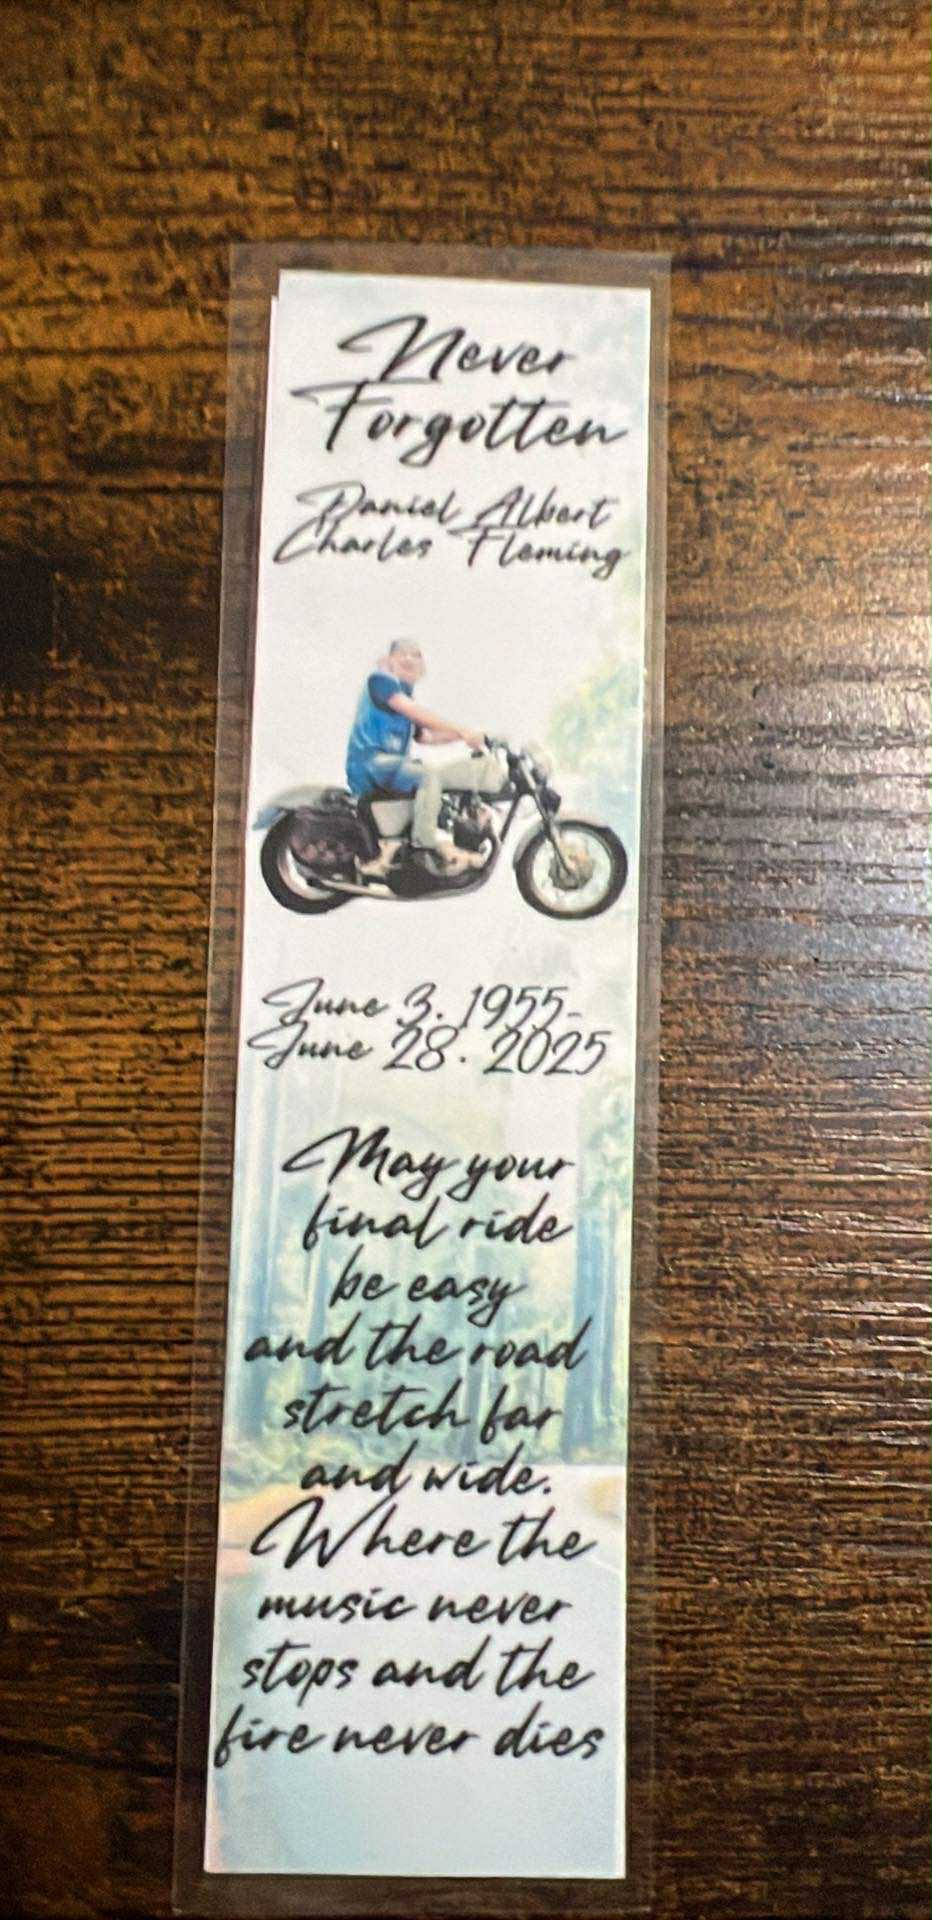 Never
Forgotten
Daniel Albert
Charles Fleming
June 3. 1955-
June 28. 2025
May your
final ride
be easy
and the road
stretch far
and wide.
Where the
music never
stops and the
fire never dies